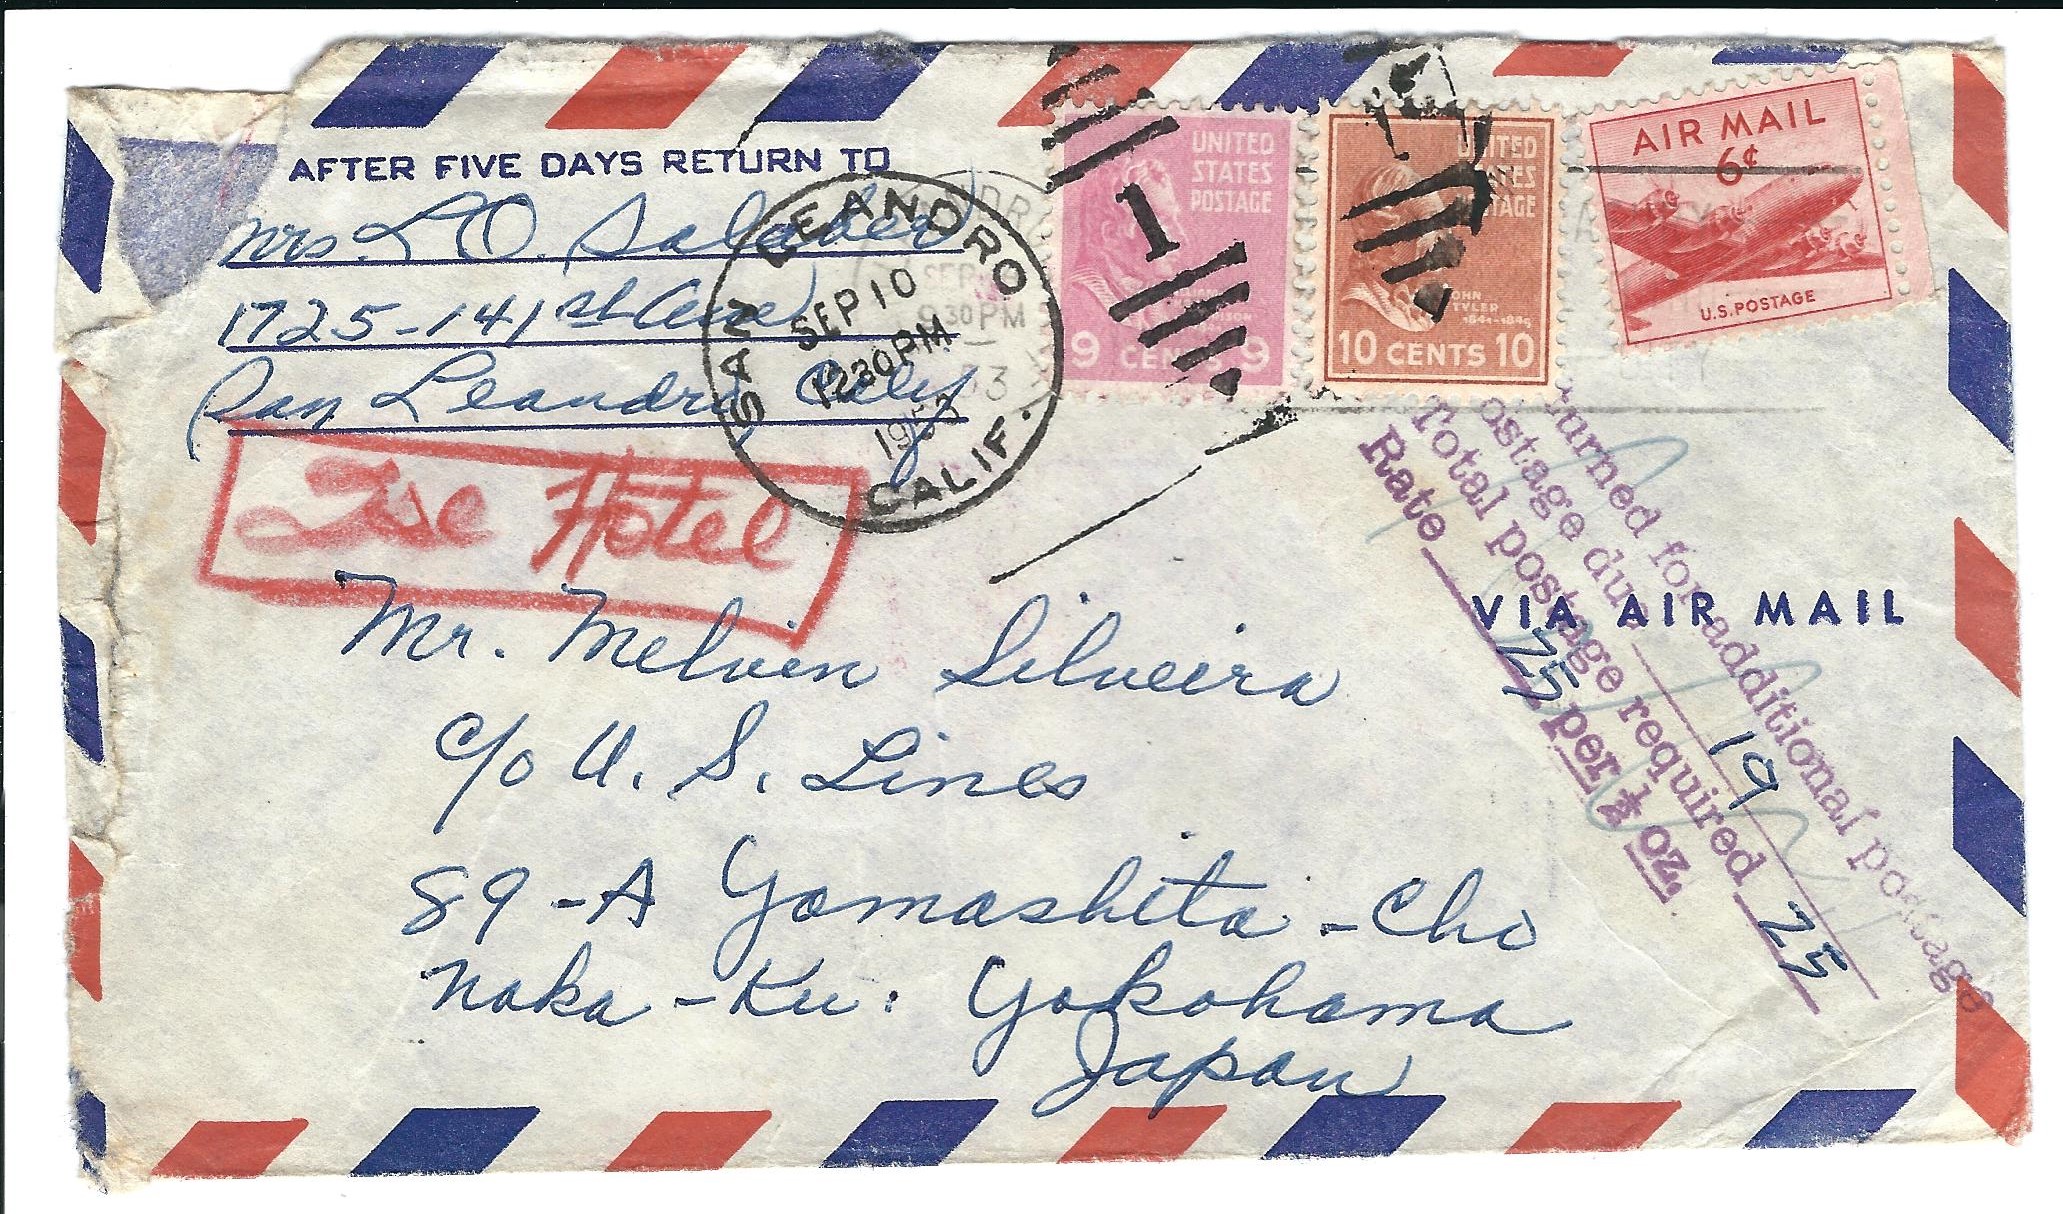 AFTER FIVE DAYS RETURN TO
Mrs. L O.
1725-141st Ave
San Leandro, Calif
SAN LEANDRO
CALIF.
SEP 10
1230PM
1953
SEP
930PM
53
1
UNITED
STATES
POSTAGE
9 CENTS 9
UNITED
STATES
POSTAGE
JOHN
TYLER
1841-1845
10 CENTS 10
AIR MAIL
6¢
U.S. POSTAGE
Hotel
VIA AIR MAIL
Mr. Melvin Silveira
c/o U. S. Lines
89-A Yamashita-Cho
Naka-Ku: Yokohama
Japan
turned for additional postage
ostage due 19
Total postage required 25
Rate 25 per ½ oz.